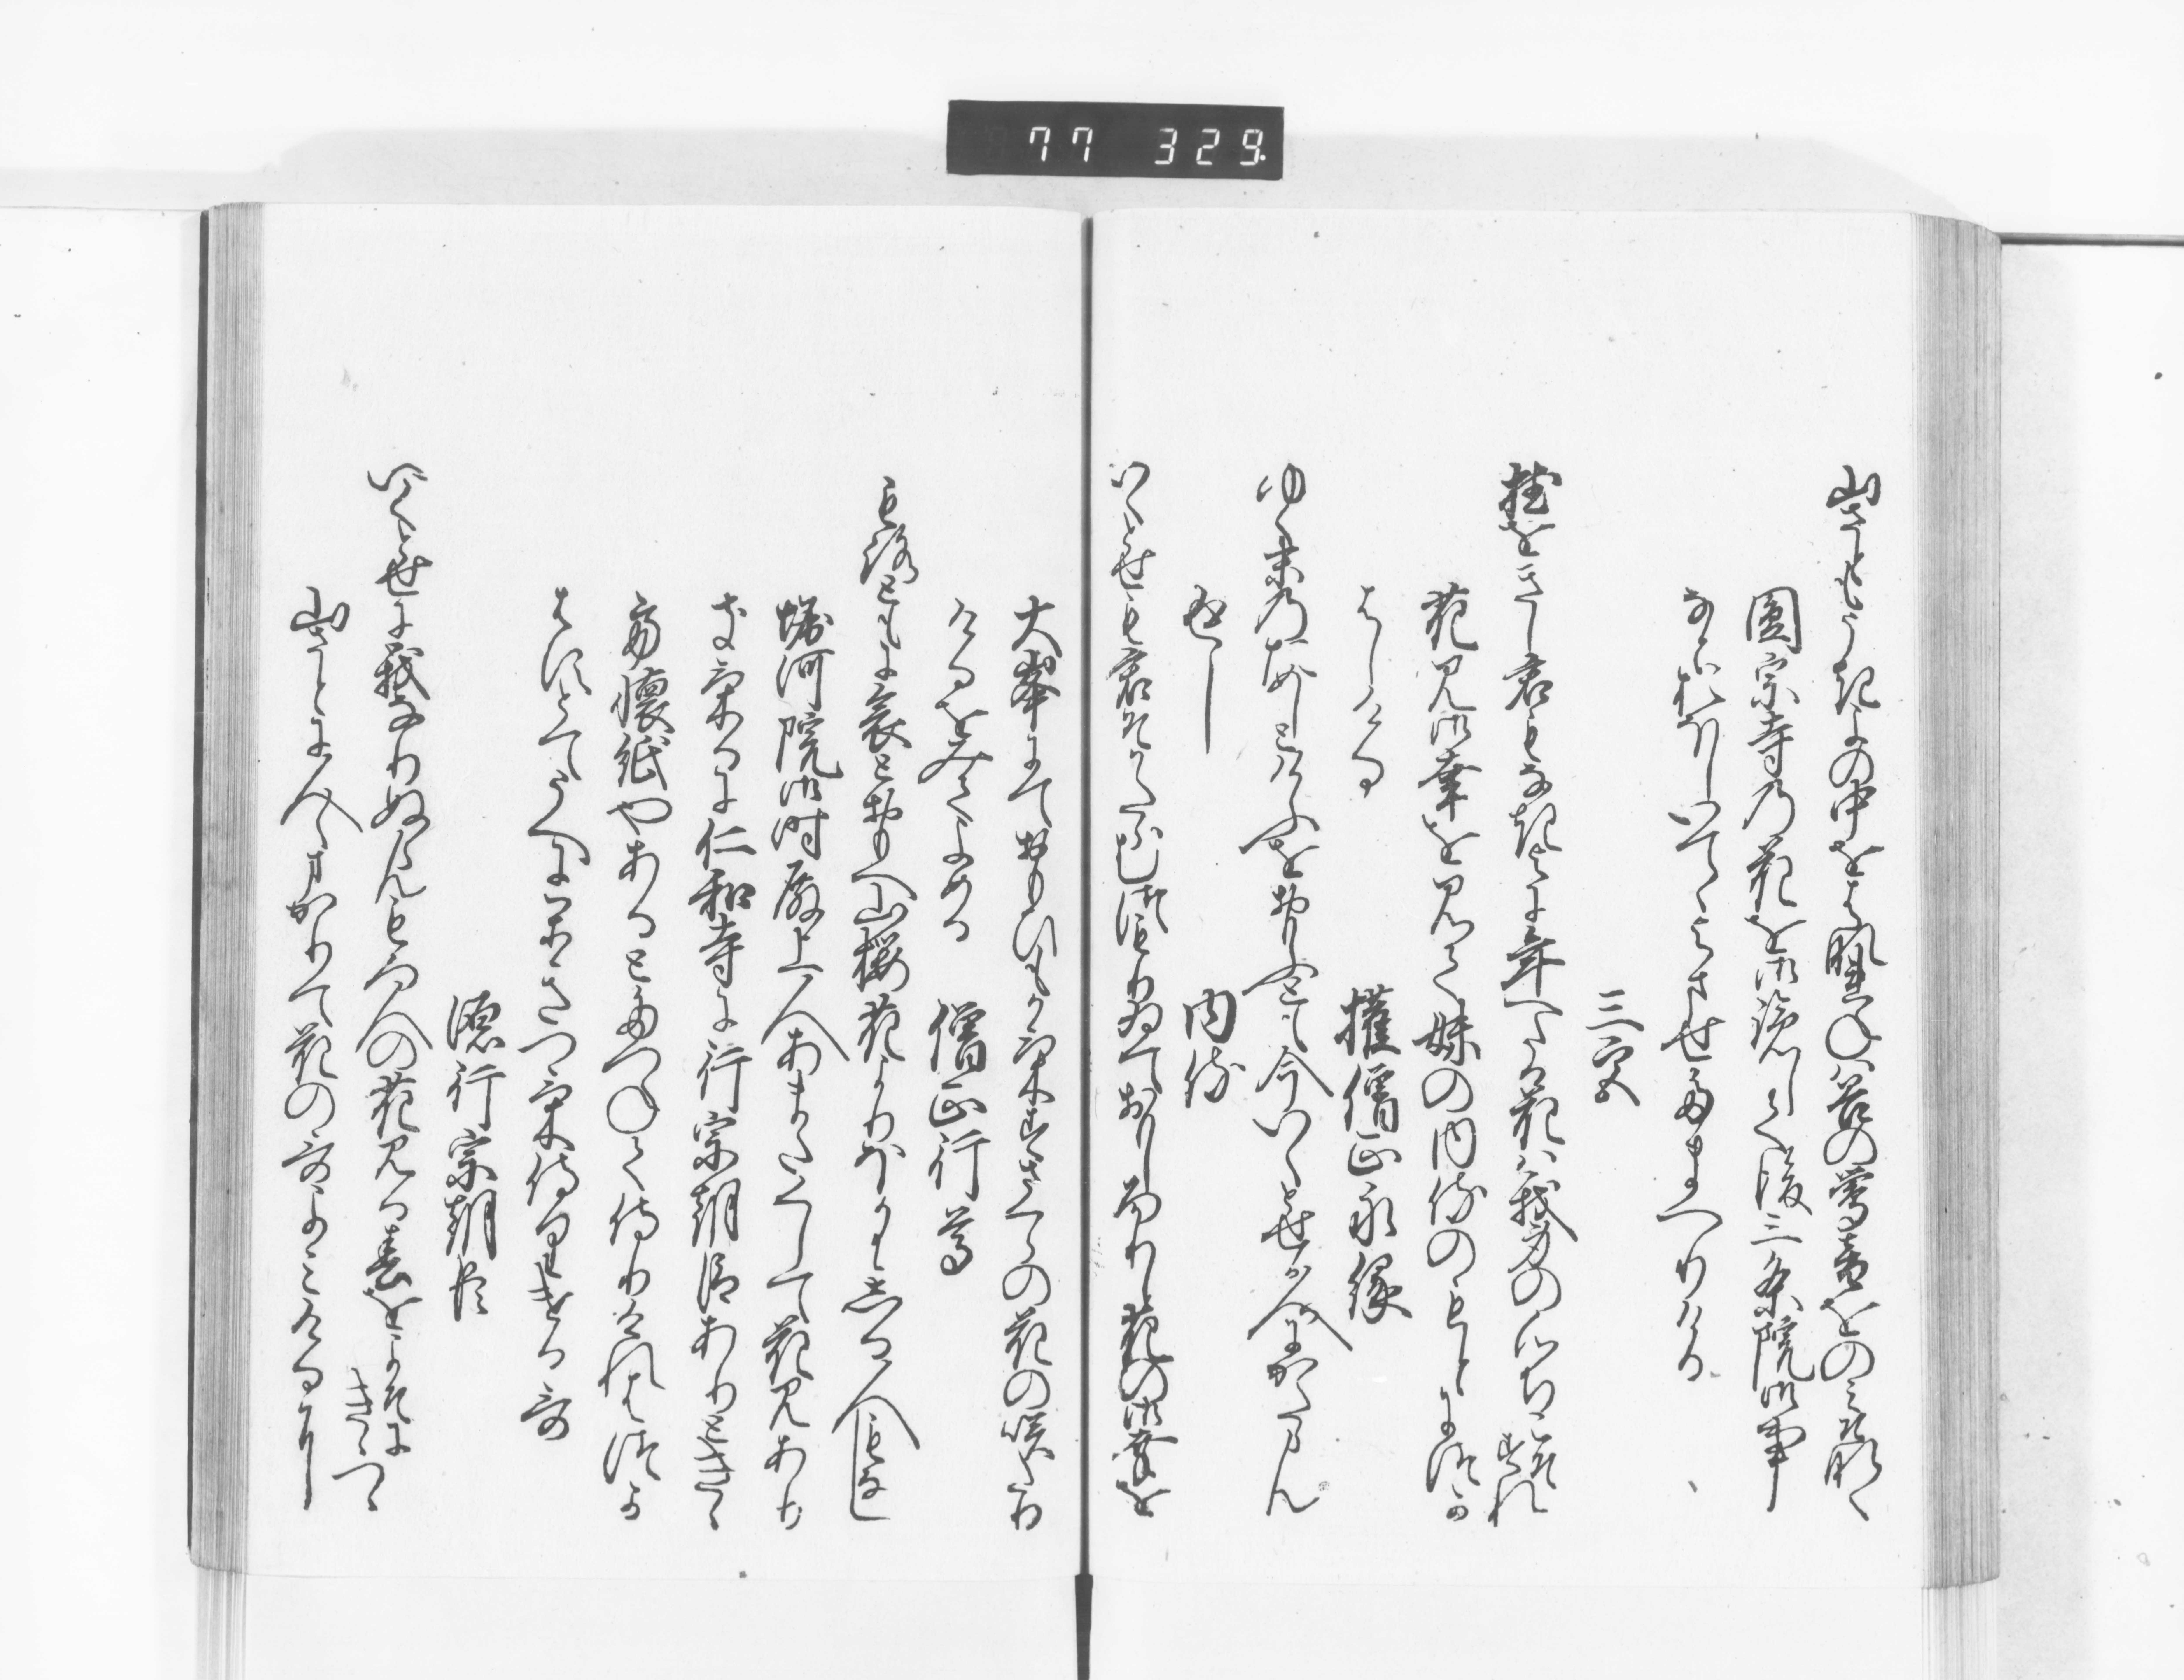 77 329
山さともうき世の中をはなれねは谷の鶯音をのみそ鳴く
圓宗寺乃花を御覧して後三条院御事
なとおほしいてゝよませたまへりける
三宮
植をきし君もなき世に年へたる花は我身の心ちこそすれ
花見御幸を見て妹の内侍のもとにつか
はしける
権僧正永縁
ゆく末乃ためしとけふを思ふとも今いくとせか人にかたらん
返し
内侍
いくとせも君そかたらむつもりゐておもしろかりし花の御幸を
大峯にておもひもかけすさくらの花の咲たり
けるをみてよめる
僧正行尊
もろともに哀と思へ山桜花よりほかにしる人もなし
堀河院御時殿上人あまたくして花見あり
きけるに仁和寺に行宗朝臣ありときゝ
て懐紙やあるとたつねて侍りけれはつか
はすとてうへにかきつけ侍りける哥
源行宗朝臣
いくとせに我なりぬらんもろ人の花見る春をよそにきゝつゝ
山さとに人々まかりて花の哥よみけるに